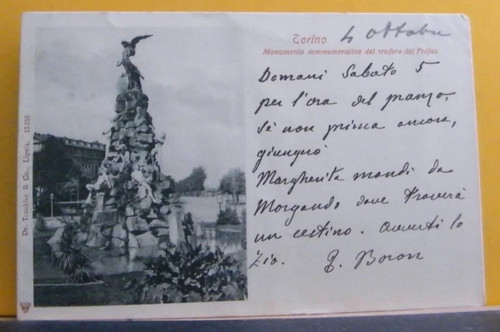 Torino 4 ottobre
Monumento commemorativo del traforo del Fréjus
Domani Sabato 5
per l'ora del pranzo,
se non prima ancora,
giungerò
Margherita mandi da
Morgando dove troverà
un cestino. Avverti lo
Zio. Boron
Dr. Trenkler & Co., Lipsia.